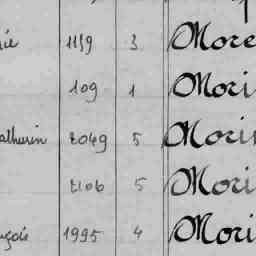 1159 3 More
109 1 Mori
athurin 2049 5 Morin
2106 5 Mori
nçois 1995 4 Mori